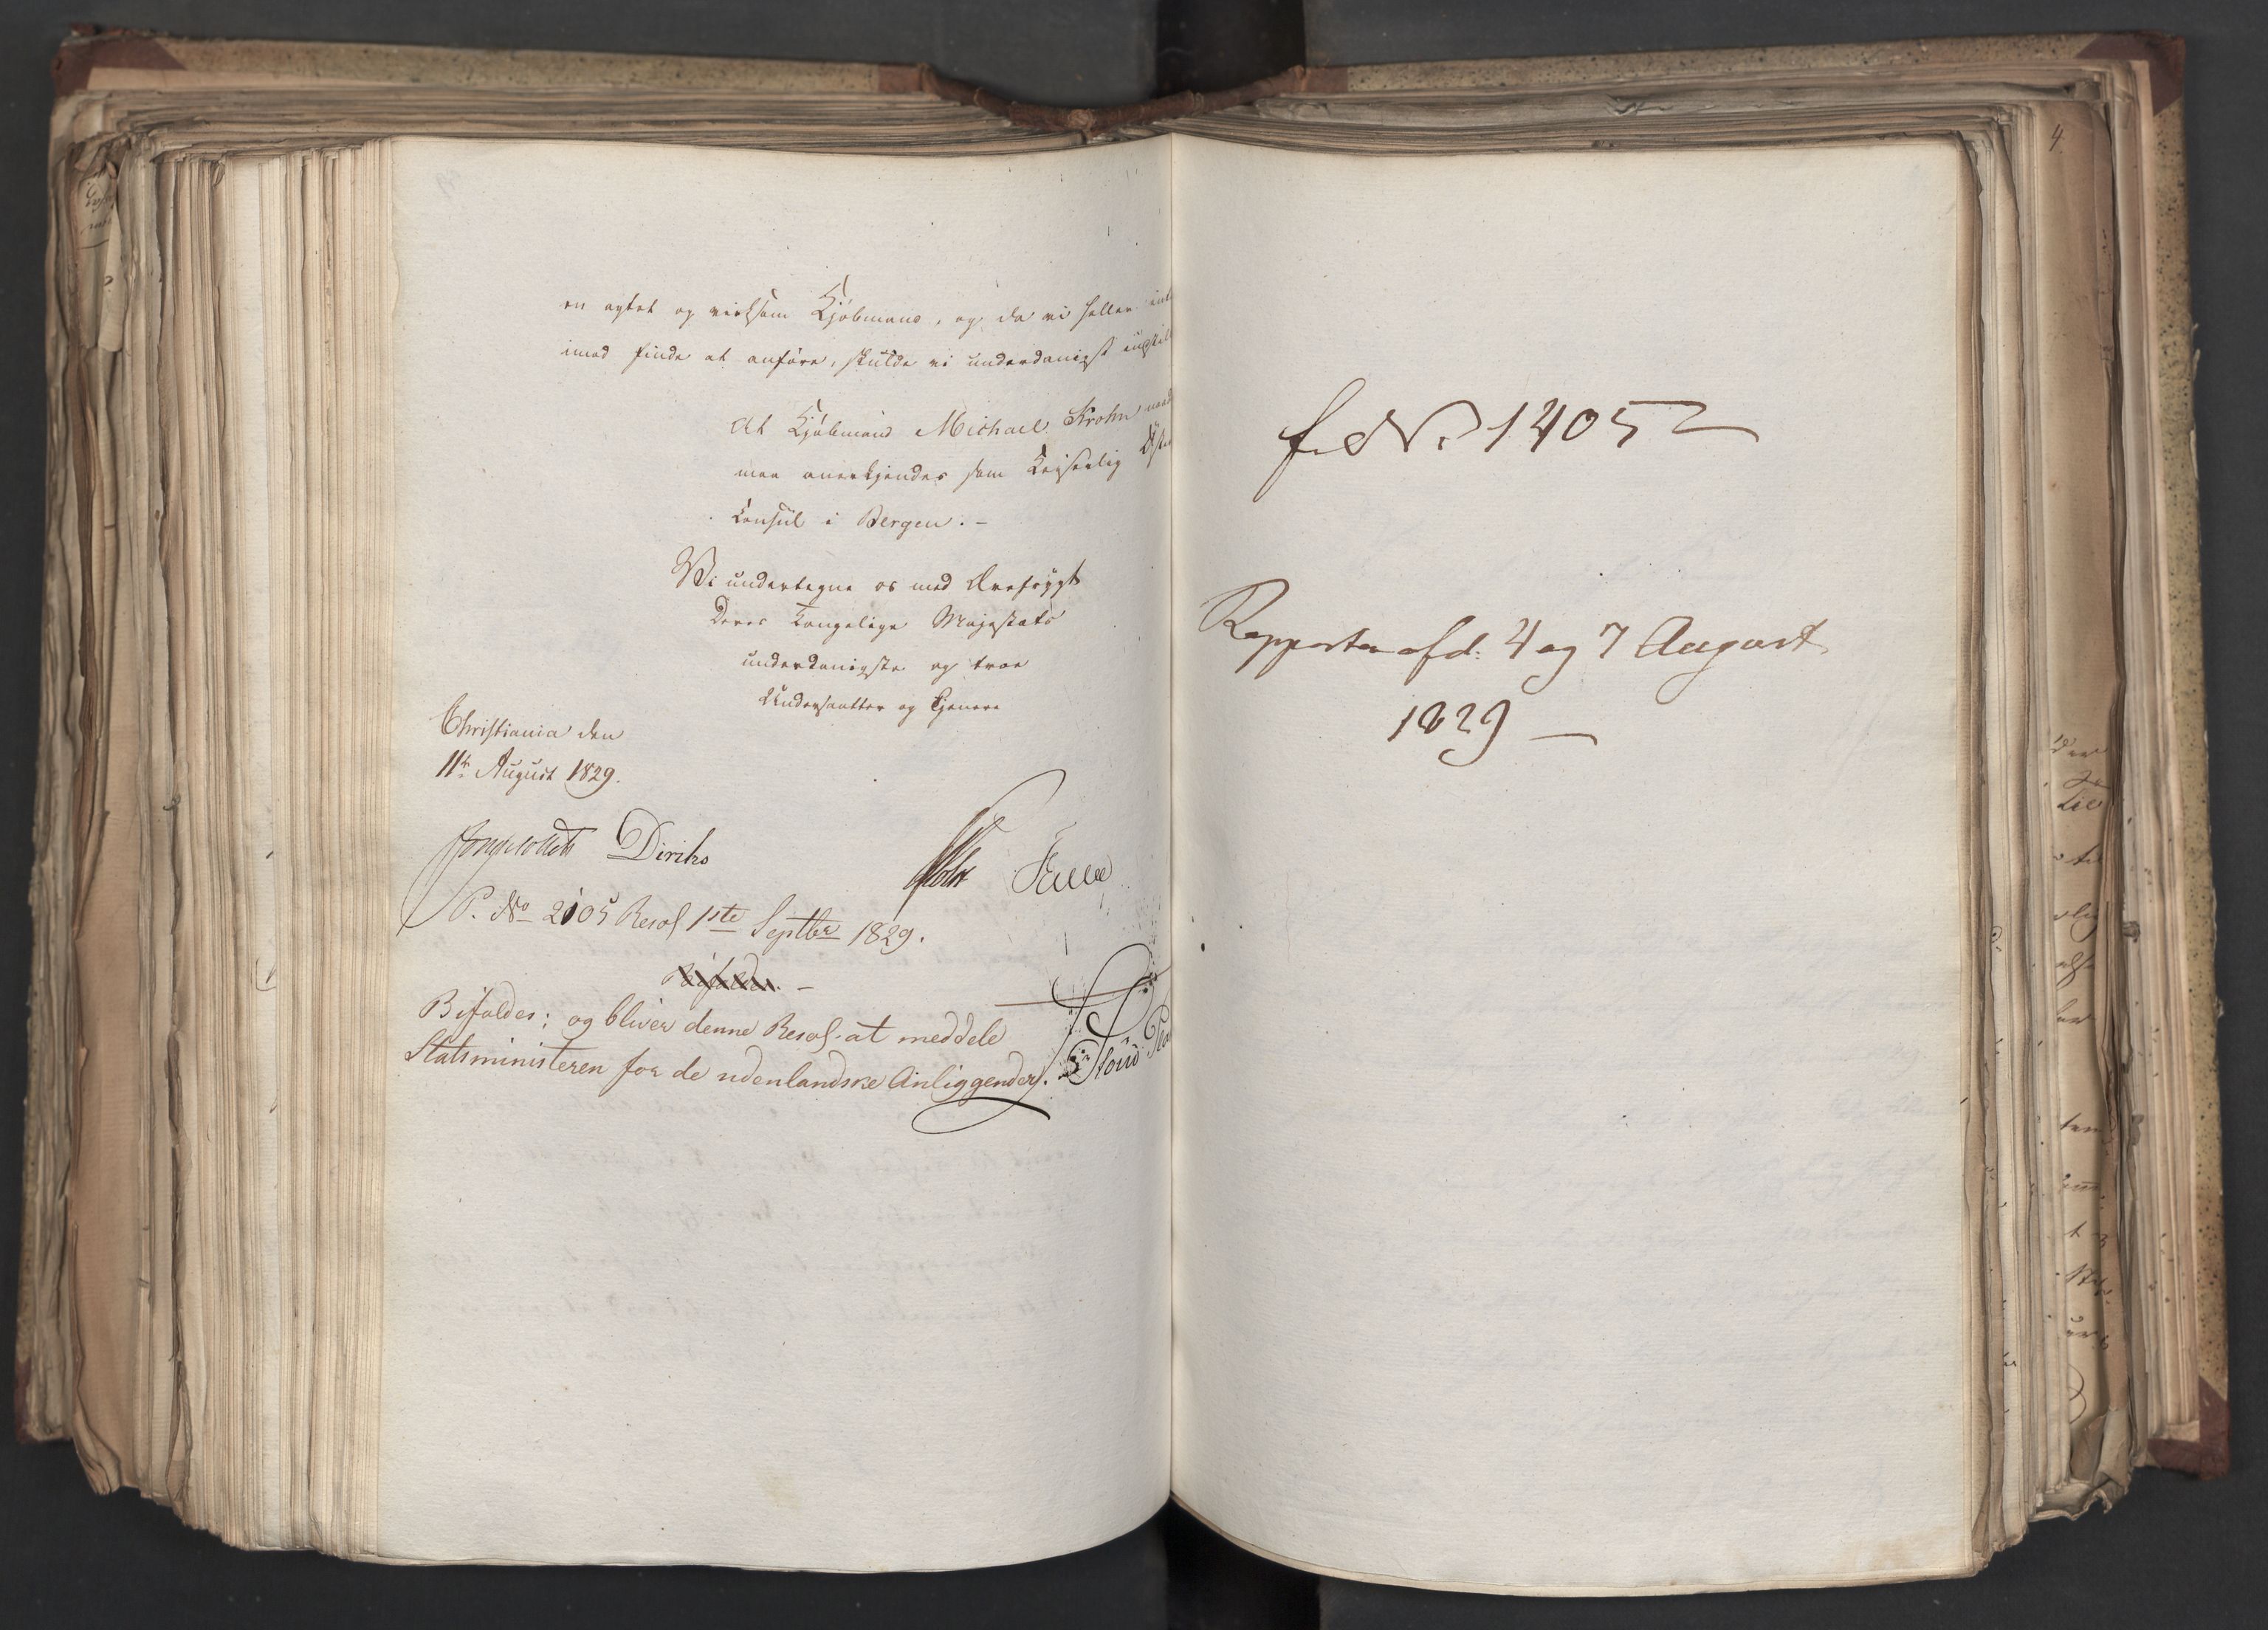 en agtet og virksom Kjøbmand, og da vi heller intet
imod finde at anføre, skulde vi underdanigst indstille
At Kjøbmand Michael Krohn naad
maa anerkjendes som Keiserlig Østr
Consul i Bergen. –
Vi undertegne os med Ærefrygt
Deres Kongelige Majestæts
underdanigste og troe
Undersaatter og Tjenere
Christiania den
11te August 1829.
Diriks
Holst
P. No 2105 Resol 1ste Septbr 1829.
Bifaldes. –
Bifaldes; og bliver denne Resol. at meddele
Statsministeren for de udenlandske Anliggender.
f. No. 1405
Rapporter af d: 4 og 7 August
1829 —
4.